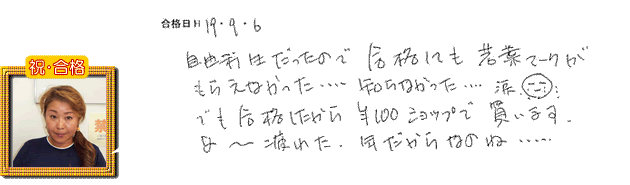 合格日 19・9・6
祝・合格
自由新生だったので 合格しても 若葉マークが
もらえなかった‥‥ 知らなかった‥‥ 涙
でも 合格したから ¥100ショップで 買います.
な〜 疲れた. 年だからなのね‥‥‥